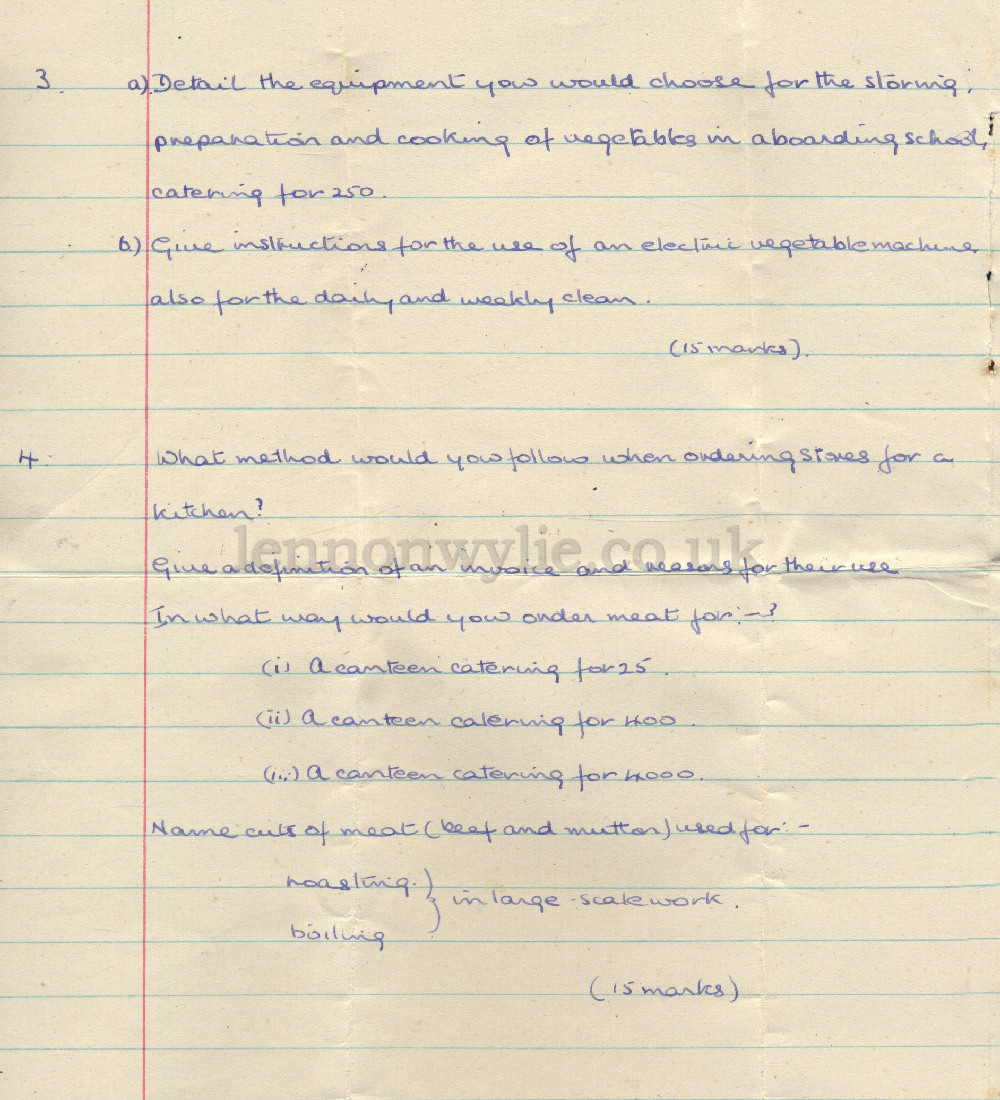 3. a) Detail the equipment you would choose for the storing,
preparation and cooking of vegetables in a boarding school,
catering for 250.
b) Give instructions for the use of an electric vegetable machine
also for the daily and weekly clean.
(15 marks).
4. What method would you follow when ordering stores for a
kitchen?
lennonwylie.co.uk
Give a definition of an invoice and reasons for their use
In what way would you order meat for:-?
(i) A canteen catering for 25.
(ii) A canteen catering for 400.
(iii) A canteen catering for 4000.
Name cuts of meat (beef and mutton) used for:-
roasting. } in large-scale work.
boiling
(15 marks)